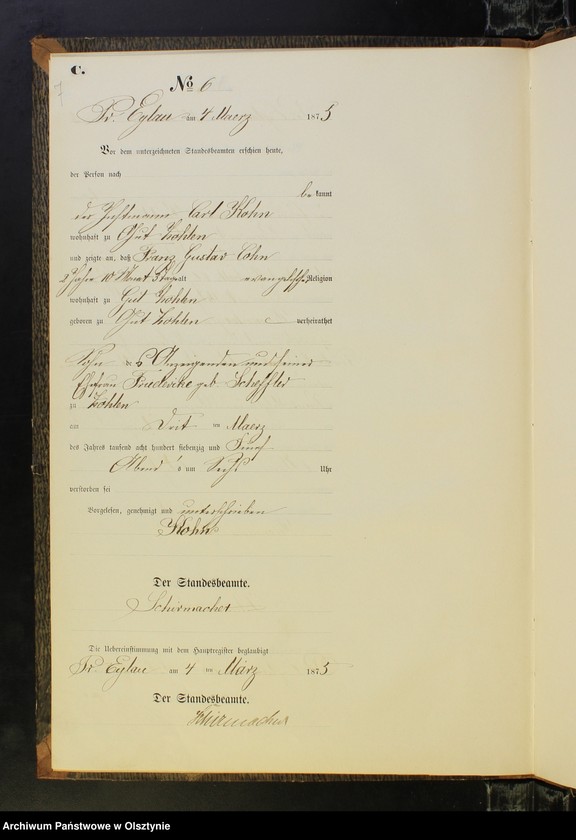 C.
No 6
Pr. Eylau am 4 Maerz 1875
Vor dem unterzeichneten Standesbeamten erschien heute,
der Person nach
be kannt
der Carl Kohn
wohnhaft zu Gut
und zeigte an, daß Franz Gustav Cohn
2 Jahre 10 Monat alt evangelisch. Religion
wohnhaft zu Gut
geboren zu Gut verheirathet
Sohn des Anzeigenden und seiner
Ehefrau Friederike geb Scheffler
zu
am ten Maerz
des Jahres tausend acht hundert siebenzig und Fünf
Abends um Sechs Uhr
verstorben sei
Vorgelesen, genehmigt und unterschrieben
Kohn
Der Standesbeamte.
Schirmacher
Die Uebereinstimmung mit dem Hauptregister beglaubigt
Pr. Eylau am 4 ten März 1875
Der Standesbeamte.
Schirmacher
Archiwum Państwowe w Olsztynie